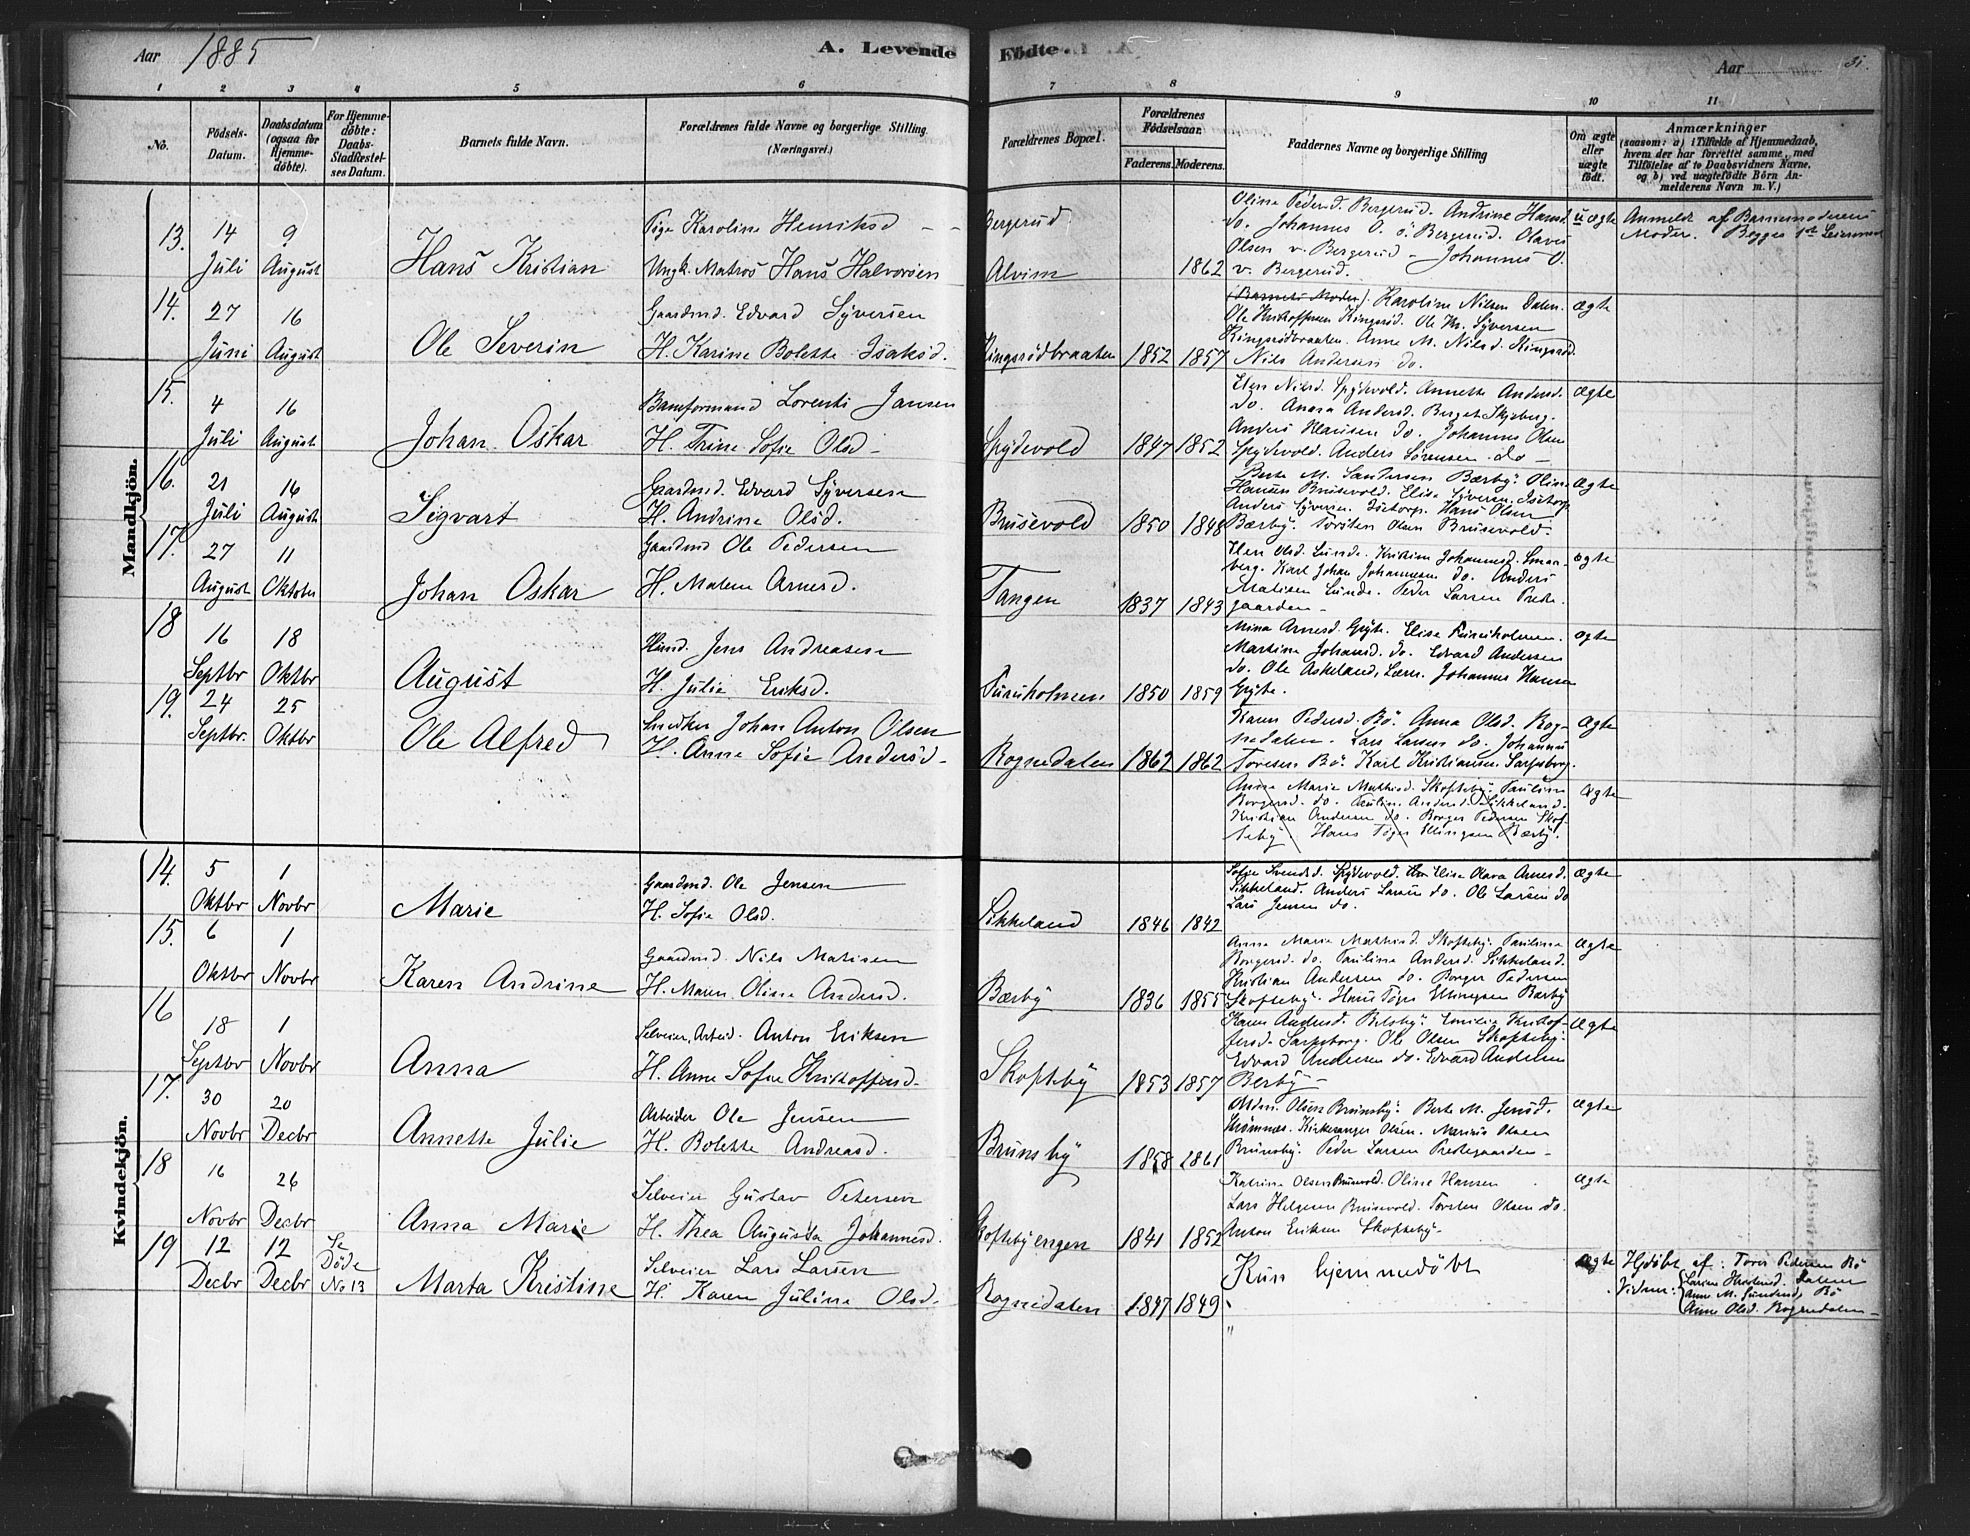 Aar 1885 A. Levende Födte. Aar 31.
1 2 3 4 5 6 7 8 9 10 11
No. Födsels-Datum. Daabsdatum (ogsaa for Hjemme-döbte). For Hjemme-döbte: Daabs-Stadfæstel-ses Datum. Barnets fulde Navn. Forældrenes fulde Navne og borgerlige Stilling (Næringsvei.) Forældrenes Bopæl. Forældrenes Födselsaar. Faderens. Moderens. Faddernes Navne og borgerlige Stilling Om ægte eller uægte födt. Anmærkninger (saasom: a) i Tilfælde af Hjemmedaab, hvem der har forrettet samme, med Tilföielse af to Daabsvidners Navne, og b) ved uægtefödte Börn Anmelderens Navn m. V.)
Mandkjön.
13. 14 Juli 9 August Hans Kristian Pige Karoline Henriksd - - Bergerud
Ungk. Matros Hans Halvorsen Alvim 1862
Oline Pedersd. Bergerud. Andrine Hansd.
do. Johannes O. ö. Bergerud. Olaves
Olsen v. Bergerud - Johannes O.
v. Bergerud.
uægte Anmeldt af Barnemoderens
Moder. Begges 1st Leiermaal
14. 27 Juni 16 August Ole Severin Gaardmd. Edvard Syversen
H. Karine Bolette Isaksd. Kingsrödbraaten 1852 1857
(Barnets Moder) Karoline Nilsen Dalen.
Ole Kristoffersen Kingsröd. Ole Kr. Syversen
Kingsrödbraaten. Anne M. Nilsd. Kingsröd.
Nils Andersen do.
ægte
15. 4 Juli 16 August Johan Oskar Baneformand Lorents Jansen
H. Trine Sofie Olsd - Spydevold 1847 1852
Elen Nilsd. Spydevold. Annette Andersd.
do. Anna Andersd. Berget Skjeberg.
Anders Hansen do. Johannes Olsen
Spydevold. Anders Sörensen do -
ægte
16. 21 Juli 16 August Sigvart Gaardmd. Edvard Syversen
H. Andrine Olsd. Brusevold 1850 1848
Berte M. Bærby. Oline
Hansen Brusevold. Elise Syversen Istorp
Anders Syversen Istorp. Hans Olsen
Bærby. Torsten Olsen Brusevold.
ægte
17. 27 August 11 Oktober Johan Oskar Gaardmd Ole Pedersen
H. Malene Arnesd. Tangen 1837 1843
Elen Olsd. Lunde. Kristine Johannesd. Smaa-
berg. Karl Johan Johannesen do. Anders
Matisen Lunde. Peder Larsen Preste
gaarden -
ægte
18 16 Septbr 18 Oktbr August Husmd. Jens Andreasen
H. Julie Eriksd. Furuholmen 1850 1859
Mina Arnesd. Grÿte. Elise Furuholmen.
Martine Johansd. do. Edvard Andersen
do. Ole Askeland, Lærer. Johannes Hansen
Grÿte.
ægte
19. 24 Septbr. 25 Oktbr Ole Alfred Snedker Johan Anton Olsen
H. Anne Sofie Andersd - Rognedalen 1862 1862
Karen Pedersd. Bö. Anna Olsd. Rog-
nedalen. Lars Larsen do. Johannes
Toresen Bö. Karl Kristiansen Sarpsborg.
ægte
Anna Marie Mathisd. Skofteby. Pauline
Borgersd. do. Pauline Andersd. Sikkeland.
Kristian Andersen do. Borger Pedersen Skof-
teby. Hans Töger Ellingsen Bærby.
ægte
Kvindekjön.
14. 5 Oktbr 1 Novbr Marie Gaardmd. Ole Jensen
H. Sofie Olsd. Sikkeland 1846 1842
Sofie Svendsd. Spydevold. Elise Olava Arnesd.
Sikkeland. Anders Larsen do. Ole Larsen do
Lars Jensen do.
ægte
15. 6 Oktbr 1 Novbr Karen Andrine Gaardmd. Nils Matisen
H. Maren Oline Andersd. Bærby 1836 1855
Anna Marie Mathisd. Skofteby. Pauline
Borgersd. do. Pauline Andersd. Sikkeland.
Kristian Andersen do. Borger Pedersen
Skofteby. Hans Töger Ellingsen Bærby
ægte
16 18 Septbr 1 Novbr Anna Selveier, Arbeid. Anton Eriksen
H. Anne Sofie Kristoffersd. Skofteby 1853 1857
Karen Andersd. Bilsby. Emilie Kristof-
fersd. Sarpsborg. Ole Olsen Skofteby.
Edvard Andersen do. Edvard Andersen
Berby -
ægte
17. 30 Novbr 20 Decbr Annette Julie Arbeider Ole Jensen
H. Bolette Andreasd. Brunsby 1858 1861
Olsen Brunsby. Berte M. Jensd.
Strömnæs. Kirkesanger Olsen. Marius Olsen
Brunsby. Peder Larsen Prestegaarden -
ægte
18 16 Novbr 26 Decbr Anna Marie Selveier Gustav Petersen
H. Thea Augusta Johannesd. Skoftebyengen 1841 1852
Katrine Olsen Brusevold. Oline Hansen
Lars Helgesen Brusevold. Torsten Olsen do.
Anton Eriksen Skofteby -
ægte
19 12 Decbr 12 Decbr Se Döde No 13 Marta Kristine Selveier Lars Larsen
H. Karen Juline Olsd. Rognedalen 1847 1849
Kun hjemmedöbt
ægte Hjdöbt af: Tores Pedersen Bö
Vidner: Larine Dalen
Anne M. Gundersd. Bö
Anne Olsd. Rognedalen -
"